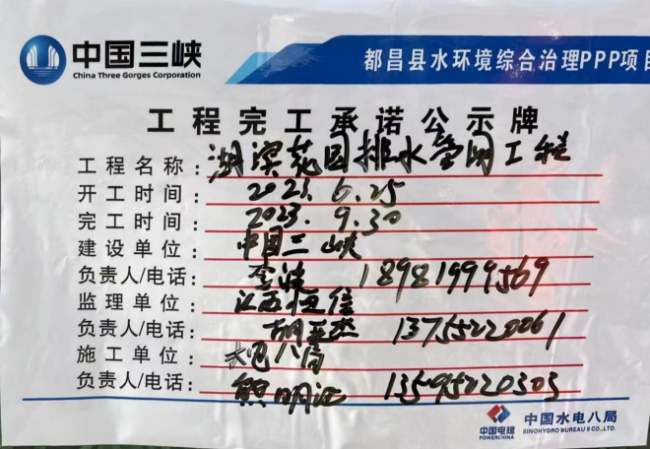 中国三峡
China Three Gorges Corporation
都昌县水环境综合治理PPP项目
工程完工承诺公示牌
工程名称：湖滨花园排水管网工程
开工时间：2023.6.25
完工时间：2023.9.30
建设单位：中国三峡
负责人/电话：李 18981999569
监理单位：江西恒信
负责人/电话：胡 杰 13755220061
施工单位：水电八局
负责人/电话：熊明 13595220303
中国电建
POWERCHINA
中国水电八局
SINOHYDRO BUREAU 8 CO.,LTD.